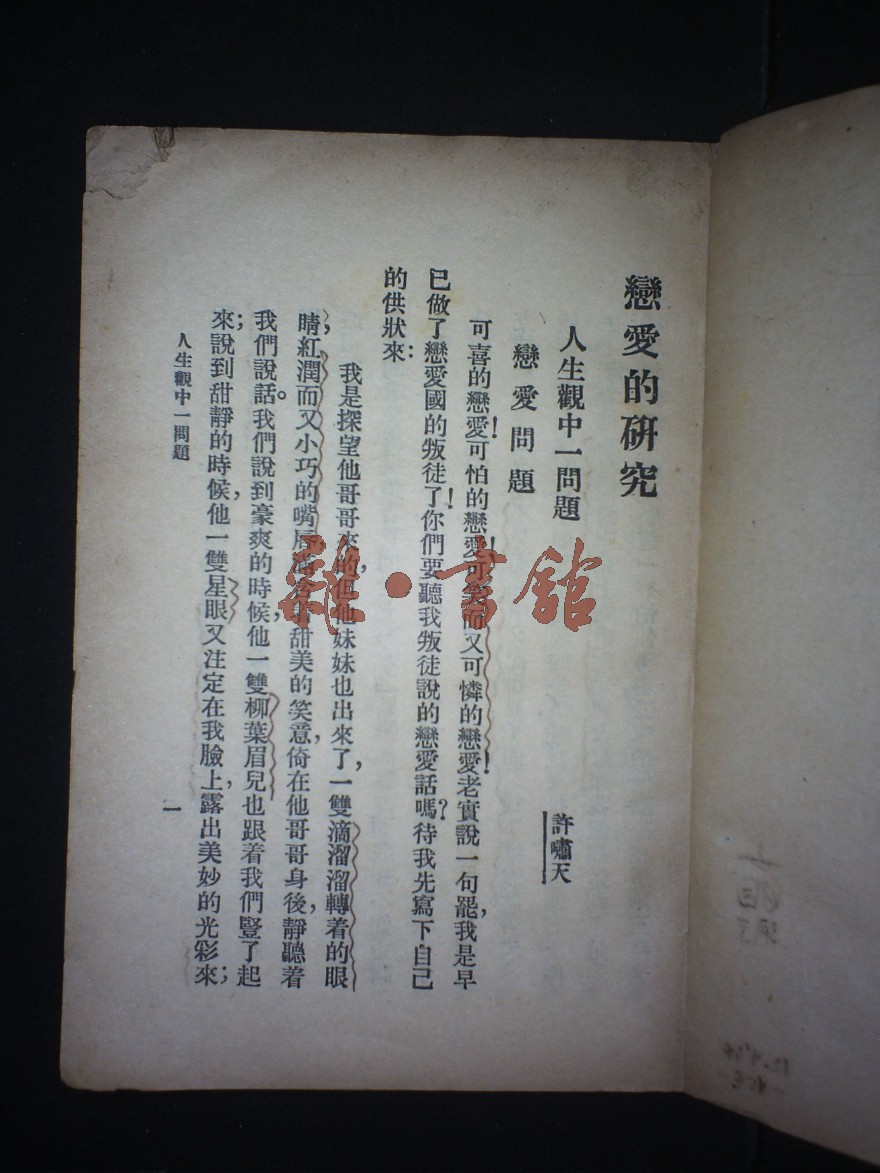 戀愛的研究
人生觀中一問題
許嘯天
戀愛問題
可喜的戀愛!可怕的戀愛!可笑而又可憐的戀愛!老實說一句罷,我是早
已做了戀愛國的叛徒了!你們要聽我叛徒說的戀愛話嗎?待我先寫下自己
的供狀來:
我是探望他哥哥來的,但他妹妹也出來了,一雙滴溜溜轉着的眼
睛,紅潤而又小巧的嘴唇,滿含着甜美的笑意,倚在他哥哥身後,靜聽着
我們說話。我們說到豪爽的時候,他一雙柳葉眉兒也跟着我們豎了起
來;說到甜靜的時候,他一雙星眼又注定在我臉上,露出美妙的光彩來;
人生觀中一問題
一
雜·書館